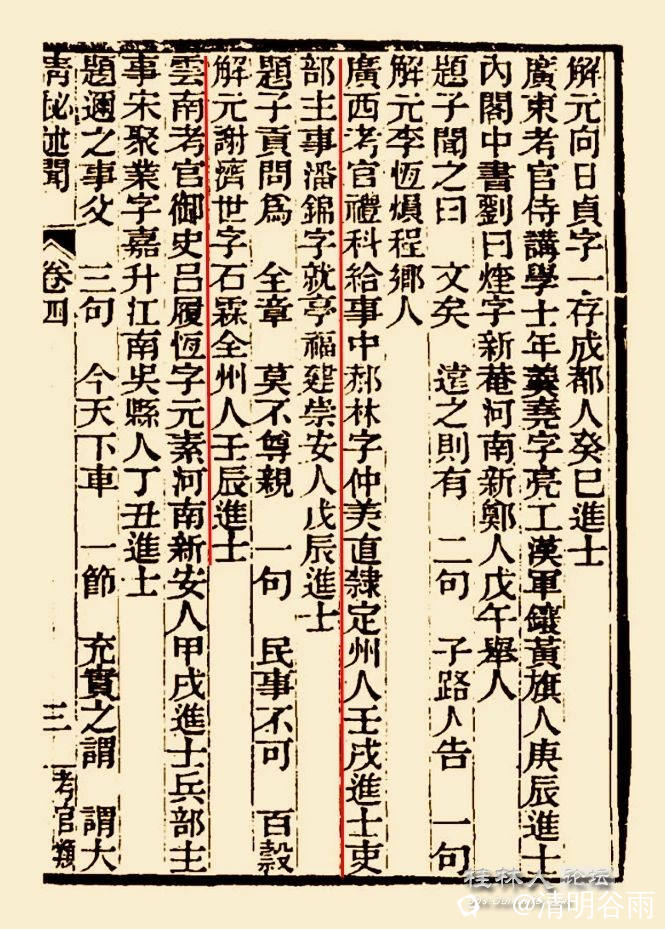 解元向日貞字一存成都人癸巳進士
廣東考官侍講學士年羹堯字亮工漢軍鑲黃旗人庚辰進士
內閣中書劉曰煃字新菴河南新鄭人戊午舉人
題子聞之曰 文矣 達之則有 二句 子路人告 一句
解元李恆熉程鄉人
廣西考官禮科給事中郝林字仲美直隸定州人壬戌進士吏
部主事潘錦字就亭福建崇安人戊辰進士
題子貢問爲 全章 莫不尊親 一句 民事不可 百穀
解元謝濟世字石霖全州人壬辰進士
雲南考官御史呂履恆字元素河南新安人甲戌進士兵部主
事宋聚業字嘉升江南吳縣人丁丑進士
題邇之事父 三句 今天下車 一節 充實之謂 謂大
清秘述聞 卷四 三 考官類
桂林人论坛
@清明谷雨